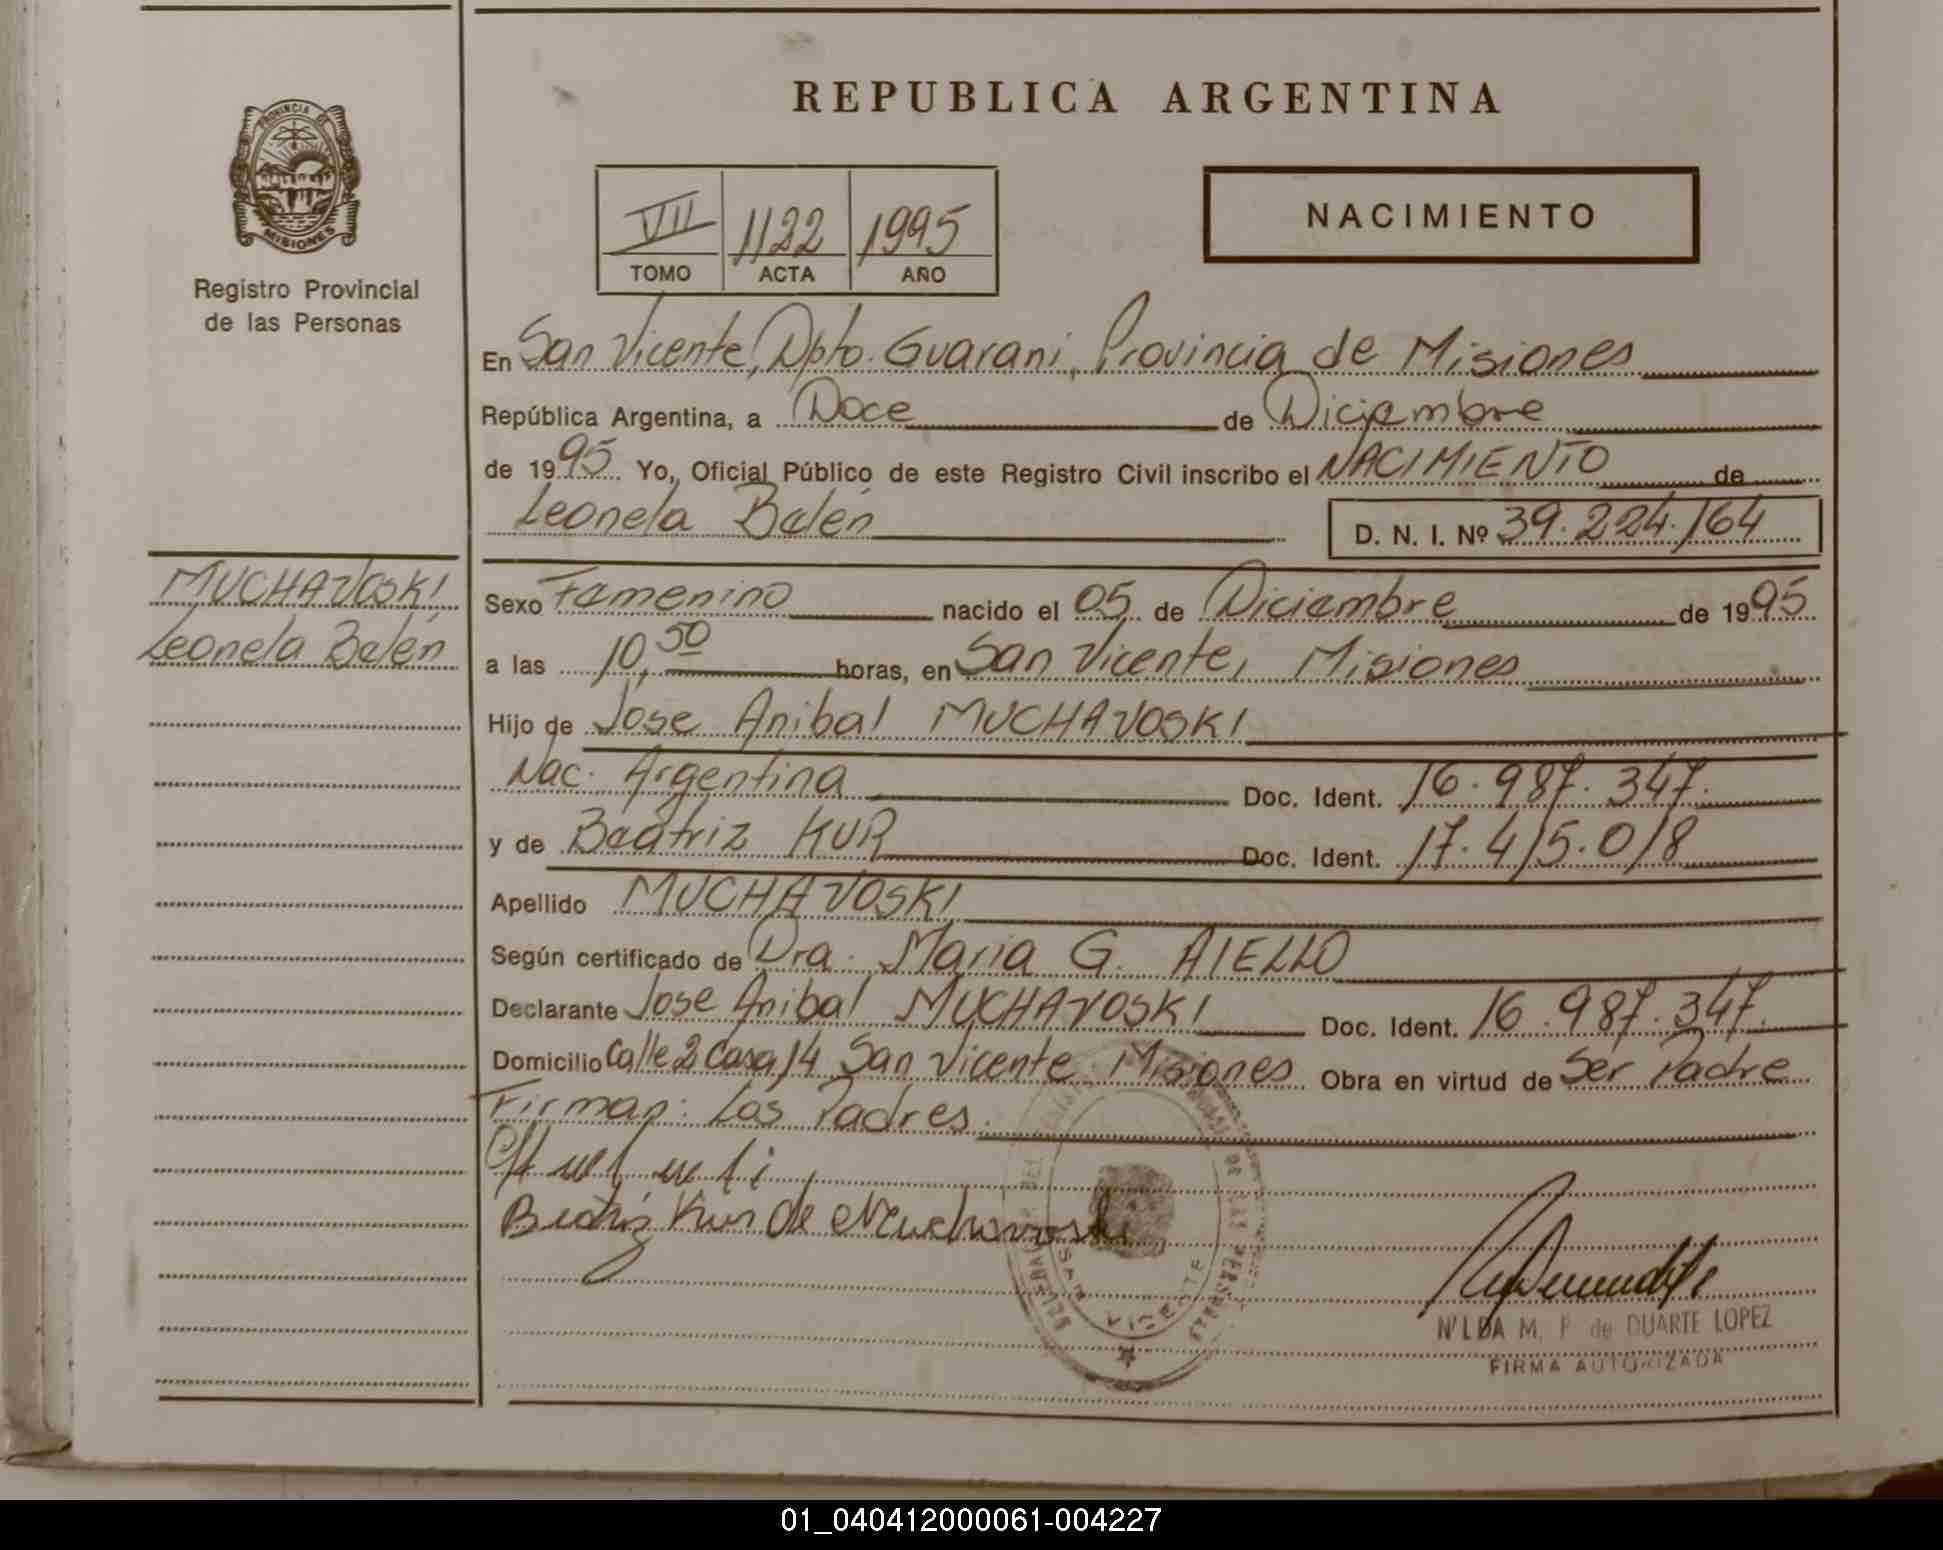 REPUBLICA ARGENTINA
PROVINCIA DE
MISIONES
Registro Provincial
de las Personas
VII 1122 1995
TOMO ACTA AÑO
NACIMIENTO
En San Vicente, Dpto. Guarani, Provincia de Misiones
República Argentina, a Doce de Diciembre
de 1995 Yo, Oficial Público de este Registro Civil inscribo el NACIMIENTO de
Leonela Belén D. N. I. Nº 39.224.164
MUCHAVOSKI
Leonela Belén
Sexo Femenino nacido el 05 de Diciembre de 1995
a las 10,50 horas, en San Vicente, Misiones
Hijo de Jose Anibal MUCHAVOSKI
Nac. Argentina Doc. Ident. 16.987.347.
y de Beatriz KUR Doc. Ident. 17.415.018
Apellido MUCHAVOSKI
Según certificado de Dra. Maria G. AIELLO
Declarante Jose Anibal MUCHAVOSKI Doc. Ident. 16.987.347.
Domicilio Calle 2 Casa 14 San Vicente Misiones Obra en virtud de Ser Padre
Firman: Los Padres.
Beatriz Kur de Muchavoski
SAN VICENTE
NILDA M. P. de DUARTE LOPEZ
FIRMA AUTORIZADA
01_040412000061-004227